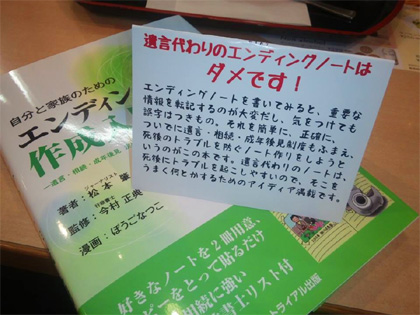 遺言代わりのエンディングノートは
ダメです！
エンディングノートを書いてみると、重要な
情報を転記するのが大変だし、気をつけても
誤字はつきもの。それを簡単に、正確に、
ついでに遺言・相続・成年後見制度もふまえ、
死後のトラブルを防ぐノート作りをしようと
いうのがこの本です。遺言代わりのノートは、
死後にトラブルを起こしやすいので、そこを
うまく何とかするためのアイディア満載です。
自分と家族のための
エンディン
作成
遺言・相続・成年後見
ジャーナリスト
著者：松本肇
行政書士
監修：今村正典
漫画：ぼうごなつこ
好きなノートを2冊用意、
ピーをとって貼るだけ
相続に強い
書士リスト付
トライアル出版